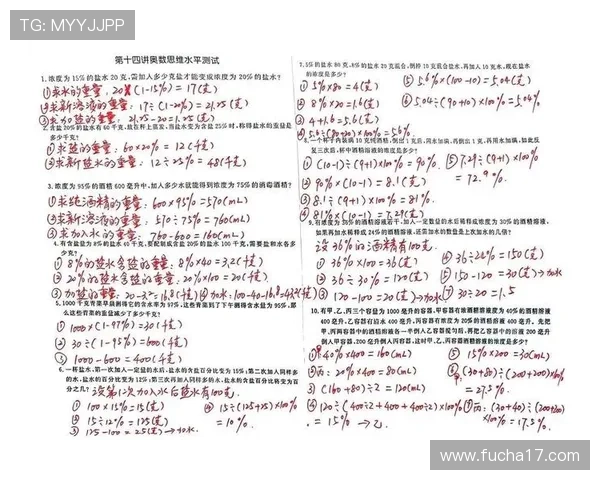 TG: MYYJJPP
第十四讲奥数思维水平测试
1.浓度为15%的盐水20克,需加入多少克盐才能变成浓度为20%的盐水?
①求水的重量:20×(1-15%)=17(克)
②求新溶液的重量:17÷(1-20%)=21.25(克)
③求加盐的重量:21.25-20=1.25(克)
2.含盐20%的盐水有60千克,放在杯上蒸发,当盐水变为含盐25%时,称得盐水的重量是多少千克?
①求盐的重量:60×20%=12(千克)
②求新盐水的重量:12÷25%=48(千克)
3.浓度为95%的酒精600毫升中,加入多少水就能得到浓度为75%的消毒酒精?
①求纯酒精的重量:600×95%=570(mL)
②求新溶液的重量:570÷75%=760(mL)
③求加入水的重量:760-600=160(mL)
4.有含盐量为8%的盐水40千克,要配制成含盐20%的盐水100千克,需要盐和水各多少克?
①8%的盐水含盐的重量:8%×40=3.2(千克)
②20%的盐水含盐的重量:20%×100=20(千克)
③加盐的重量:20-3.2=16.8(千克)④加水:100-40-16.8=43.2(千克)
5.1000千克青菜早晨测得它的含水率为97%,这些青菜到了下午测得含水量为95%,那么这些青菜的重量减少了多少千克?
①1000×(1-97%)=30(千克)
②30÷(1-95%)=600(千克)
③1000-600=400(千克)
6.一杯盐水,第一次加入一定量的水后,盐水的含盐百分比变为15%;第二次加入同样多的水,盐水的含盐百分比变为12%;第三次再加入同样多的水,盐水的含盐百分比将变为百分之几?
设第1次加入水后盐水有100克.
①100×15%=15(克)
②15÷12%=125(克)
③125-100=25(克)→加水
④15÷(125+25)×100%
=10%.
7.15%的盐水80克,8%的盐水20克混合,倒掉10克混合盐水,再加入10克水,现在盐水的浓度是多少?
⑤5.6%×(100-10)=5.04(克)
①5%×80=4(克)
②8%×20=1.6(克)
⑥5.04÷(90+10)×100%=5.04%
③4+1.6=5.6(克)
④5.6÷(80+20)×100%=5.6%
8.一个杯子内装满10克纯酒精,倒出1克后,用水加满,再倒出1克,再用水加满,如此反复三次后,杯中酒精溶液的浓度是多少?
①(10-1)÷(9+1)×100%=90%.
⑤7.29÷(9+1)×100%
②90%×(10-1)=8.1(克)
=72.9%.
③8.1÷(9+1)×100%=81%
④81%×(10-1)=7.29(克)
9.有浓度为36%的酒精溶液若干,加入一定数量的水后稀释成浓度为30%的酒精溶液,如果再加水稀释成24%的酒精溶液,还需加水的数量是上次加水的几倍?
设36%的酒精有100克.
①36%×100=36(克)
④36÷24%=150(克)
②36÷30%=120(克)
⑤150-120=30(克)→加水
③120-100=20(克)→加水
⑦30÷20=1.5
10.有甲、乙、丙三个容器为1000毫升的容器,甲容器有浓度为40%的酒精溶液400毫升,乙容器有清水400毫升,丙容器有浓度为20%的酒精溶液400毫升,先把甲、丙两容器中的酒精溶液各一半倒入乙容器搅匀后,再把乙容器中的溶液200毫升倒入甲容器,200毫升倒入丙容器,这时甲、乙、丙容器中酒精溶液的浓度是多少?
①甲:40%×400=160(mL)
⑤15%×200=30(mL)
②丙:20%×400=80(mL)
⑥(30+80)÷(200+200)×100%
③(160+80)÷2=120(mL)
=27.5%.
④120÷(400÷2+400+400÷2)×100%
⑦丙:(30+40)÷(200+200)
=15%→乙
×100%=17.5%.
www.fucha17.com